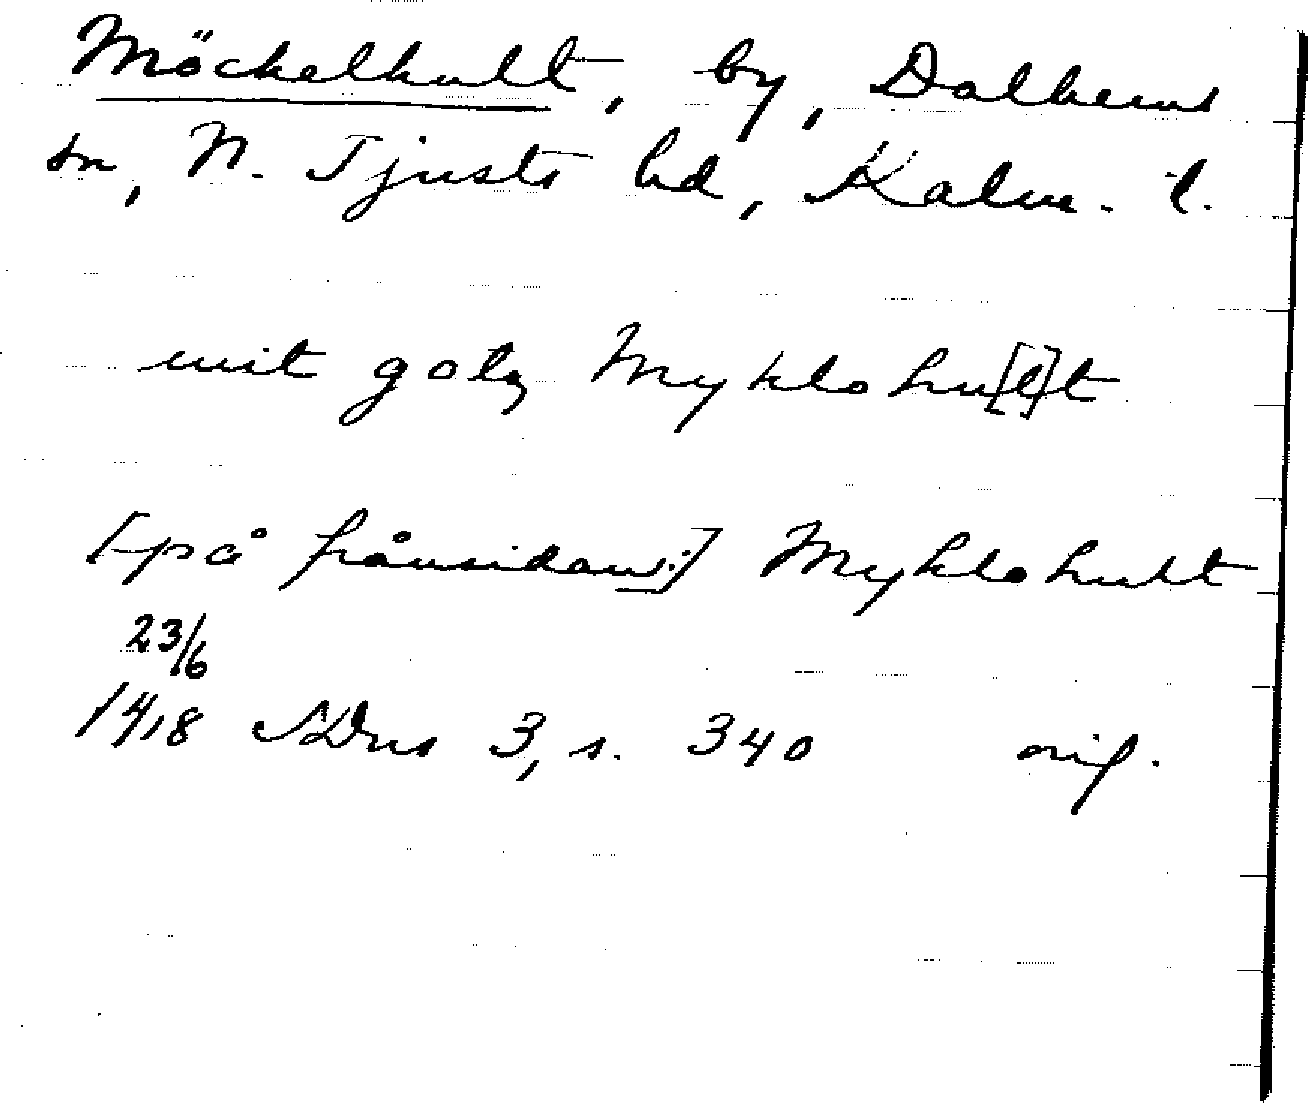 Möckelhult, by, Dalhems
sn, N. Tjusts hd, Kalm. l.
mit gotz Myklohu[l]t
[på frånsidan:] Myklohult
23/6
1418 SDns 3, s. 340 orig.